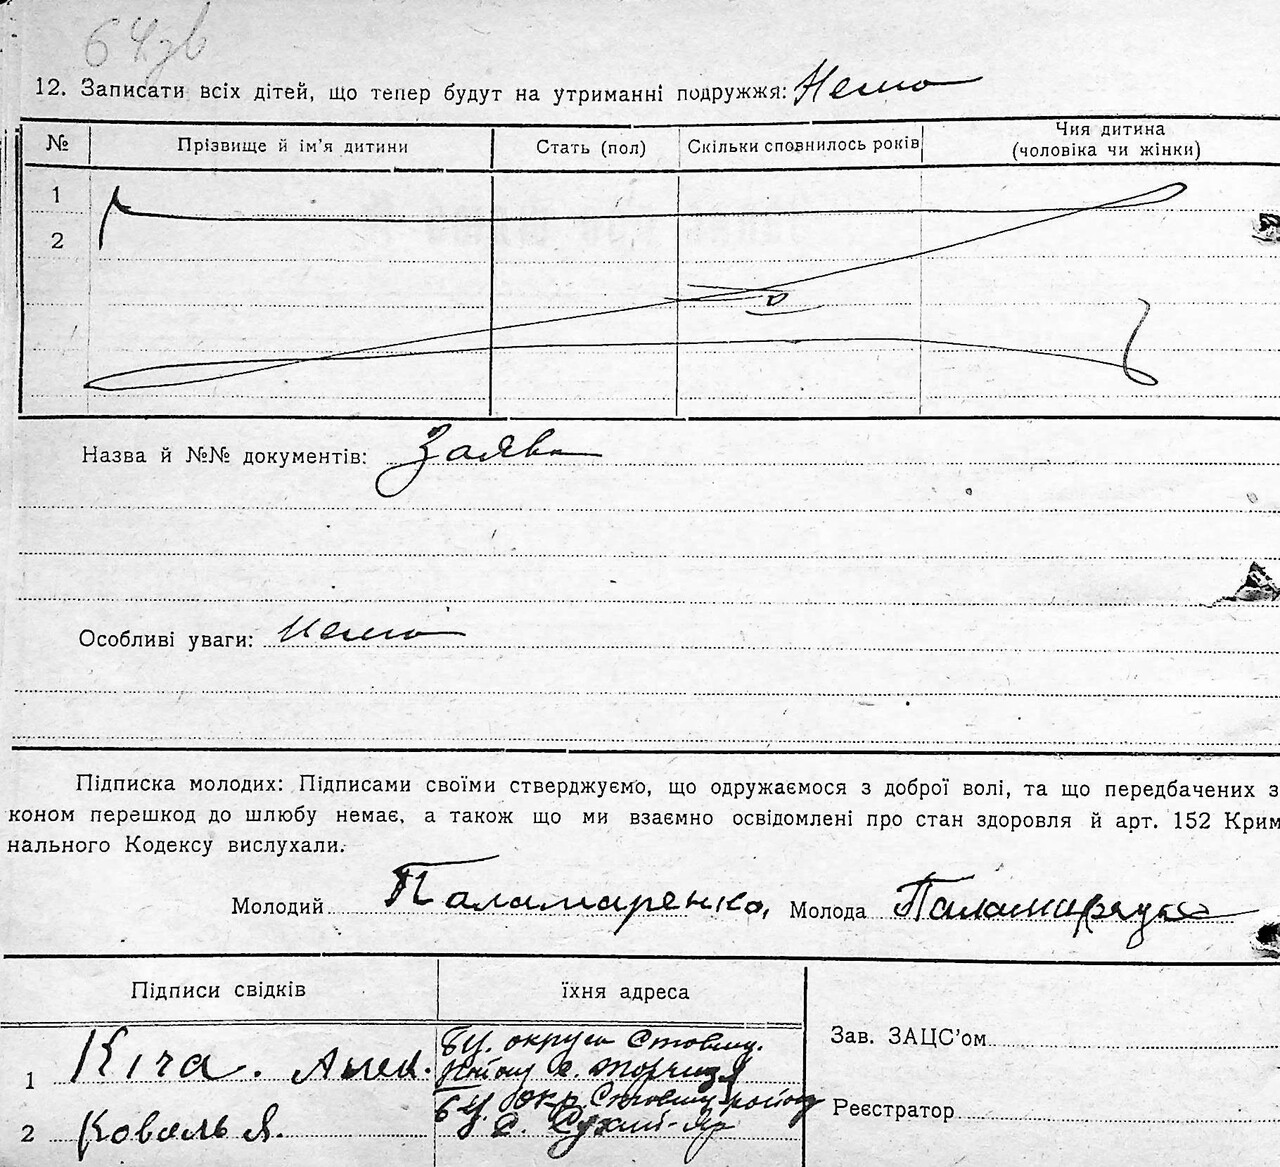 64зв
12. Записати всіх дітей, що тепер будут на утриманні подружжя: Нема
№ Прізвище й ім'я дитини Стать (пол) Скільки сповнилось років Чия дитина
(чоловіка чи жінки)
1
2
Назва й №№ документів: Заява
Особливі уваги: Нема
Підписка молодих: Підписами своїми стверджуємо, що одружаємося з доброї волі, та що передбачених з
коном перешкод до шлюбу немає, а також що ми взаємно освідомлені про стан здоровля й арт. 152 Крим
нального Кодексу вислухали.
Молодий Паламаренко, Молода
Підписи свідків їхня адреса
Зав. ЗАЦС'ом
БЦ. округи Ставищ.
1 Кіча.
району с.
БЦ. окр. Ставищ. району
Реєстратор
2 Коваль Я. с. Сухий-Яр